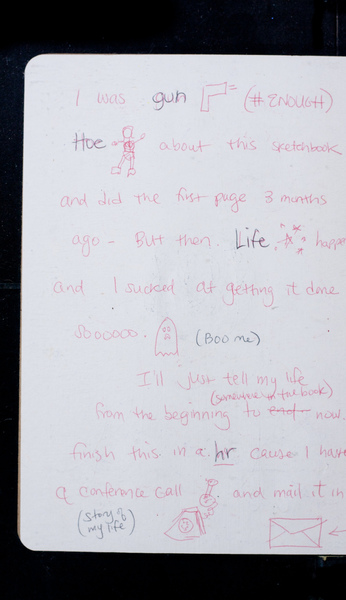 I was gun (#ENOUGH)
Hoe about this sketchbook
and did the first page 3 months
ago - But then. Life happe
and I sucked at getting it done
sooooooo. (Boo me)
I'll just tell my life
(somewhere in the book)
from the beginning to end now.
finish this in a hr cause I have
a conference call and mail it in
(story of
my life)